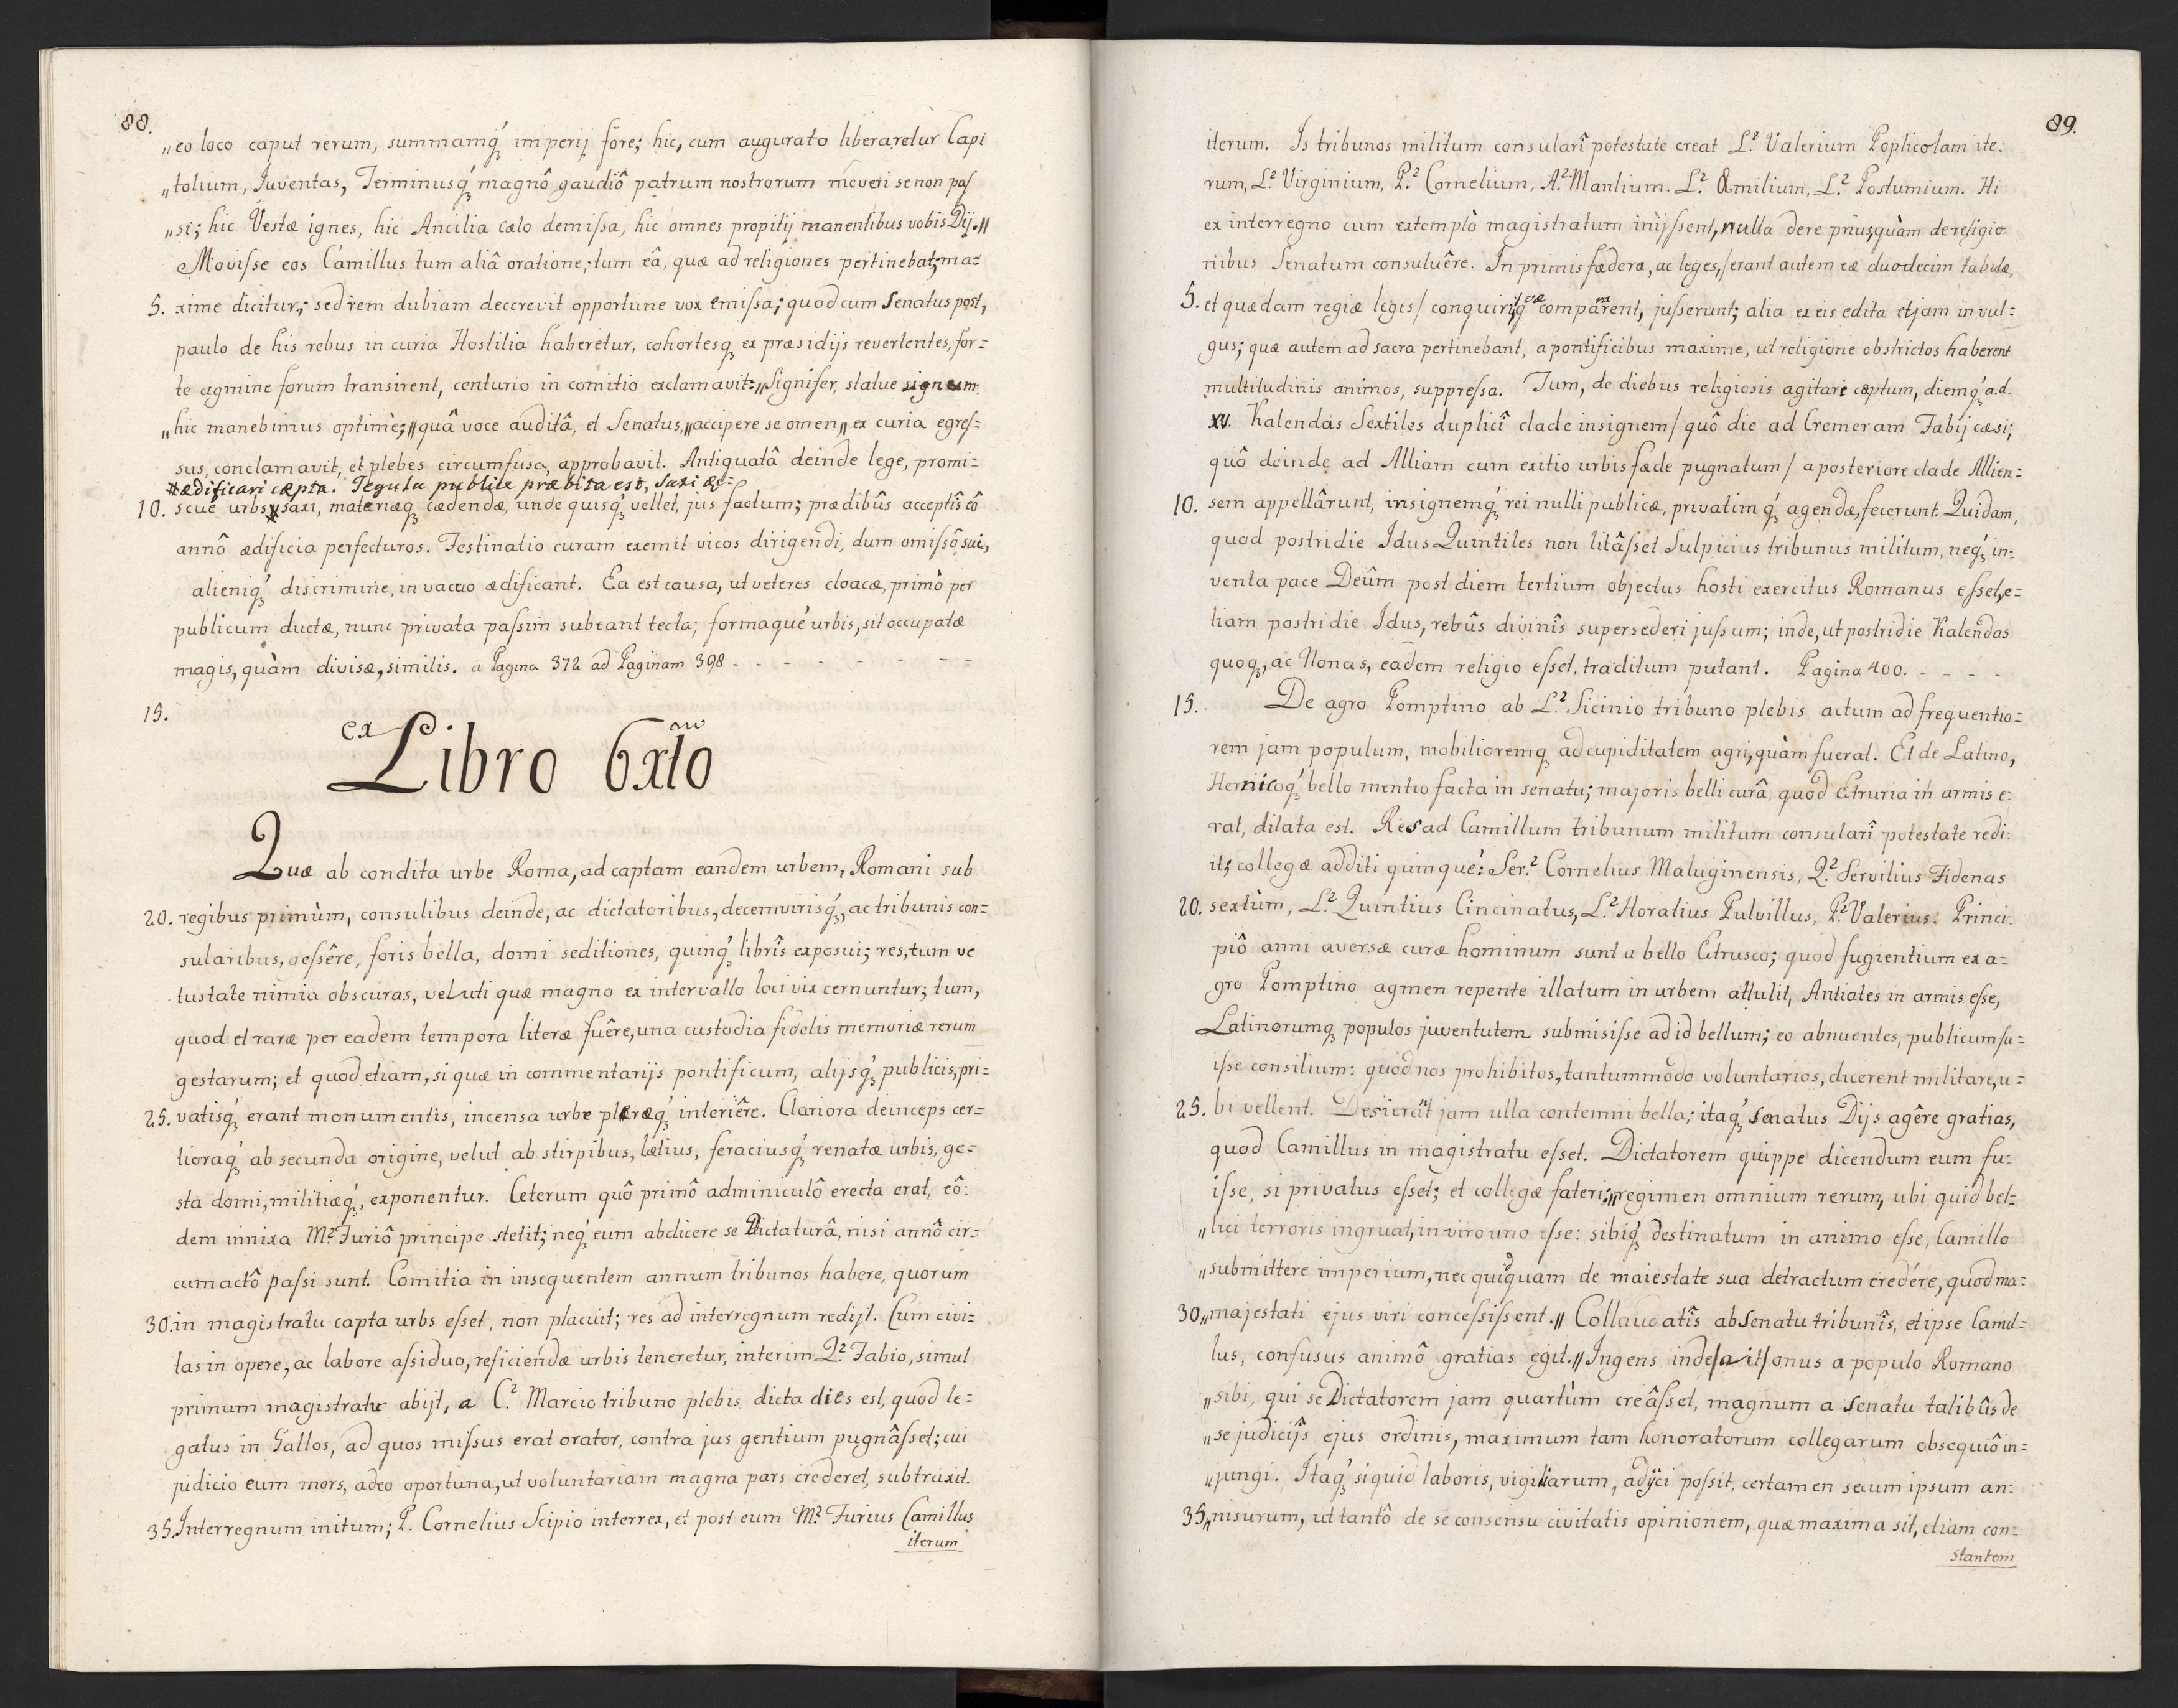 88.
„eo loco caput rerum, summamq́ꝫ imperij fore; hic, cum augurato liberaretur Capi
„tolium, Juventas, Terminusq́ꝫ magnô gaudiô patrum nostrorum moveri se non paſ
„si; hic Vestæ ignes, hic Ancilia cælo demiſsa, hic omnes propitij manentibus vobis Dij.„
Moviſse eos Camillus tum aliâ oratione, tum eâ, quæ ad religiones pertinebat, ma=
5. xime dicitur; sed rem dubiam decrevit opportune vox emiſsa; quod cum Senatus post,
paulo de his rebus in curia Hostilia haberetur, cohortesqꝫ ex præsidijs revertentes, for=
te agmine forum transirent, centurio in comitio exclamavit: „Signifer, statue signum:
„hic manebimus optimè; „quâ voce auditâ, et Senatus, „accipere se omen„ ex curia egreſ=
sus, conclamavit, et plebes circumfusa, approbavit. Antiquatâ deinde lege, promi=
*ædificari cæpta. Tegula publice præbita est, Saxi æ=
10. scue urbs * saxi, materiæqꝫ cædendæ, unde quisq́ꝫ vellet, jus factum; prædibûs acceptîs eô
annô ædificia perfecturos. Festinatio curam exemit vicos dirigendi, dum omiſsô sui,
alieniq́ꝫ discrimine, in vacuo ædificant. Ea est causa, ut veteres cloacæ, primò per
publicum ductæ, nunc privata paſsim subeant tecta; formaque urbis, sit occupatæ
magis, quàm divisæ, similis. a Pagina 372 ad Paginam 398 - - - - - - - - -
15.
ex Libro 6xto
Quæ ab condita urbe Roma, ad captam eandem urbem, Romani sub
20. regibus primùm, consulibus deinde, ac dictatoribus, decemvirisq́ꝫ, ac tribunis con=
sularibus, geſsêre, foris bella, domi seditiones, quinq́ꝫ librîs exposui; res, tum ve
tustate nimia obscuras, veluti quæ magno ex intervallo loci vix cernuntur; tum,
quod et raræ per eadem tempora literæ fuêre, una custodia fidelis memoriæ rerum
gestarum; et quod etiam, si quæ in commentarijs pontificum, alijsq́ꝫ publicis, pri=
25. vatisq́ꝫ erant monumentis, incensa urbe pleræq́ꝫ interiêre. Clariora deinceps cer=
tioraq́ꝫ ab secunda origine, velut ab stirpibus, lætius, feraciusq́ꝫ renatæ urbis, ge=
sta domi, militiæq́ꝫ, exponentur. Ceterum quô primô adminiculô erecta erat, eô=
dem innixa M.º Furiô principe stetit; neq́ꝫ eum abdicere se Dictaturâ, nisi annô cir=
cumactô paſsi sunt. Comitia in insequentem annum tribunos habere, quorum
30. in magistratu capta urbs eſset, non placuit; res ad interregnum redijt. Cum civi=
tas in opere, ac labore aſsiduo, reficiendæ urbis teneretur, interim Q.º Fabio, simul
primum magistratu abijt, a C.º Marcio tribuno plebis dicta dies est, quod le=
gatus in Gallos, ad quos miſsus erat orator, contra jus gentium pugnâſset; cui
judicio eum mors, adeo oportuna, ut voluntariam magna pars crederet, subtraxit.
35. Interregnum initum; P. Cornelius Scipio interrex, et post eum M.º Furius Camillus
iterum
89.
iterum. Is tribunos militum consularî potestate creat L.º Valerium Poplicolam ite:
rum, L.º Virginium, P.º Cornelium, A.º Manlium. L.º Æmilium, L.º Postumium. Hi
ex interregno cum extemplò magistratum inijſsent, nulla de re priusquàm de religio=
nibus Senatum consuluêre. In primis fædera, ac leges, /erant autem eæ duodecim tabulæ,
5. et quædam regiæ leges/ conquiri, quæ comparerent, juſserunt; alia ex eis edita etjam in vul=
gus; quæ autem ad sacra pertinebant, a pontificibus maxime, ut religione obstrictos haberent
multitudinis animos, suppreſsa. Tum, de diebus religiosis agitari cæptum, diemq́ꝫ a.d.
xv. Kalendas Sextiles duplicî clade insignem / quô die ad Cremeram Fabij cæsi;
quô deinde ad Alliam cum exitio urbis fæde pugnatum / a posteriore clade Allien=
10. sem appellârunt, insignemq́ꝫ rei nulli publicæ, privatimq́ꝫ agendæ, fecerunt. Quidam,
quod postridie Idus Quintiles non litâſset Sulpicius tribunus militum, neq́ꝫ in=
venta pace Deûm post diem tertium objectus hosti exercitus Romanus eſset, e=
tiam postridie Idus, rebûs divinîs supersederi juſsum; inde, ut postridie Kalendas
quoqꝫ, ac Nonas, eadem religio eſset, traditum putant. Pagina 400. - - - -
15. De agro Pomptino ab L.º Sicinio tribuno plebis actum ad frequentio=
rem jam populum, mobilioremqꝫ ad cupiditatem agri, quàm fuerat. Et de Latino,
Hernicoq́ꝫ bello mentio facta in senatu; majoris belli curâ, quod Etruria in armis e=
rat, dilata est. Res ad Camillum tribunum militum consularî potestate redi=
it; collegæ additi quinque: Ser.º Cornelius Maluginensis, Q.º Servilius Fidenas
20. sextùm, L.º Quintius Cincinatus, L.º Horatius Pulvillus, P.º Valerius. Princi=
piô anni aversæ curæ hominum sunt a bello Etrusco; quod fugientium ex a=
gro Pomptino agmen repente illatum in urbem attulit, Antiates in armis eſse,
Latinorumqꝫ populos juventutem submisiſse ad id bellum; eo abnuentes, publicum fu=
iſse consilium: quod nos prohibitos, tantummodo voluntarios, dicerent militare, u=
25. bi vellent. Desierãt jam ulla contemni bella; itaq́ꝫ senatus Dijs agêre gratias,
quod Camillus in magistratu eſset. Dictatorem quippe dicendum eum fu=
iſse, si privatus eſset; et collegæ fateri; „regimen omnium rerum, ubi quid bel=
„lici terroris ingruat, in viro uno eſse: sibiq́ꝫ destinatum in animo eſse, Camillo
„submittere imperium, nec quiquam de maiestate sua detractum credére, quod ma=
30. „majestati ejus viri conceſsiſsent.„ Collaudatîs ab Senatu tribunîs, et ipse Camil=
lus, confusus animô gratias egit. „Ingens inde /a it/ onus a populo Romano
„sibi, qui se Dictatorem jam quartùm creâſset, magnum a Senatu talibûs de
„se judicijs ejus ordinis, maximum tam honoratorum collegarum obsequiô in=
„jungi. Itaq́ꝫ siquid laboris, vigiliarum, adijci poſsit, certamen secum ipsum an=
35. „nisurum, ut tantô de se consensu civitatis opinionem, quæ maxima sit, etiam con=
stantem